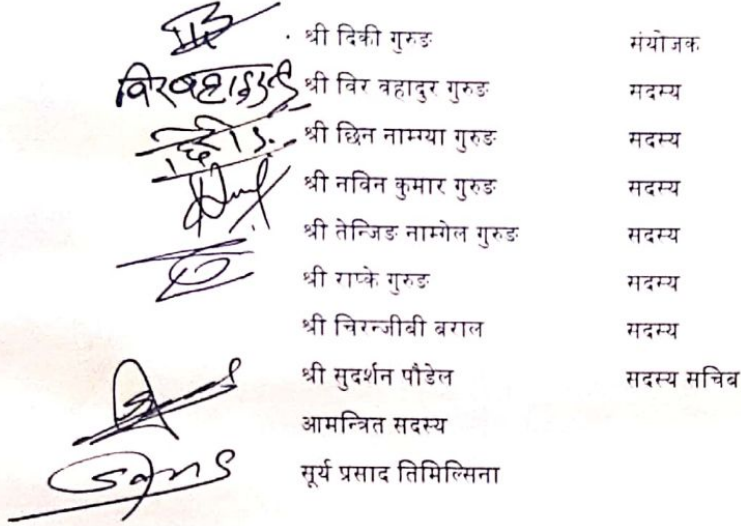 श्री दिकी गुरुङ संयोजक
विर बहादुर श्री विर वहादुर गुरुङ सदस्य
श्री छिन नाम्ग्या गुरुङ सदस्य
श्री नविन कुमार गुरुङ सदस्य
श्री तेन्जिङ नाम्गेल गुरुङ सदस्य
श्री राप्के गुरुङ सदस्य
श्री चिरन्जीबी बराल सदस्य
श्री सुदर्शन पौडेल सदस्य सचिब
आमन्त्रित सदस्य
सूर्य प्रसाद तिमिल्सिना